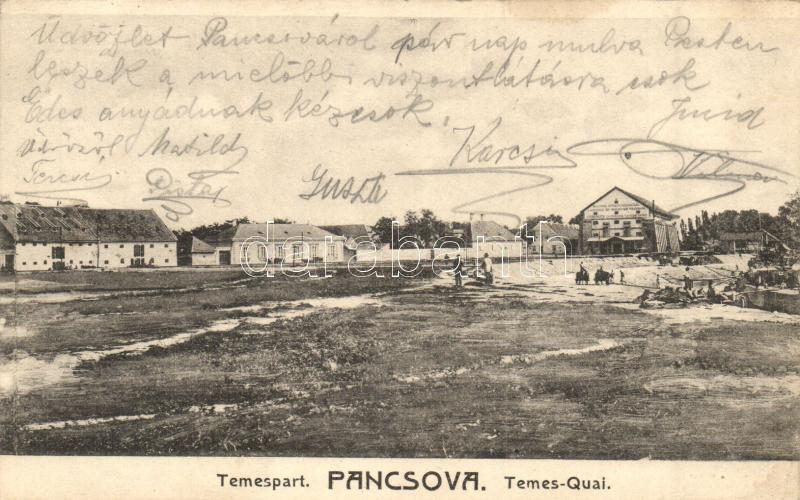 Üdvözlet Pancsováról pár nap mulva Pesten
leszek a mielőbbi viszontlátásra csók
Édes anyádnak kézcsók.
üdvözöl Matild
Karcsi
Guszti
Vilmos
darabanth
Temespart. PANCSOVA. Temes-Quai.